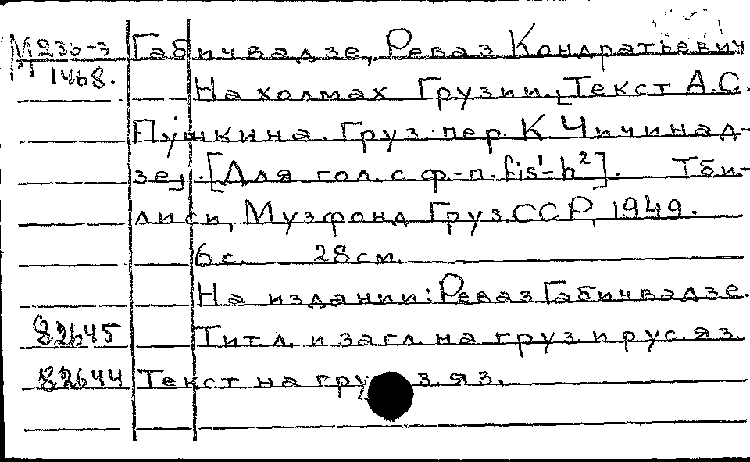 М 236-3 Габичвадзе, Реваз Кондратьевич
1468. На холмах Грузии. [Текст А.С.
Пушкина. Груз. пер. К. Чичинад-
зе]. [Для гол. с ф.-п. fis¹-h²]. Тби-
лиси, Музфонд Груз.ССР, 1949.
6 с. 28 см.
На издании: Реваз Габичвадзе.
82645 Тит. л. и загл. на груз. и рус. яз.
82644 Текст на груз. яз.